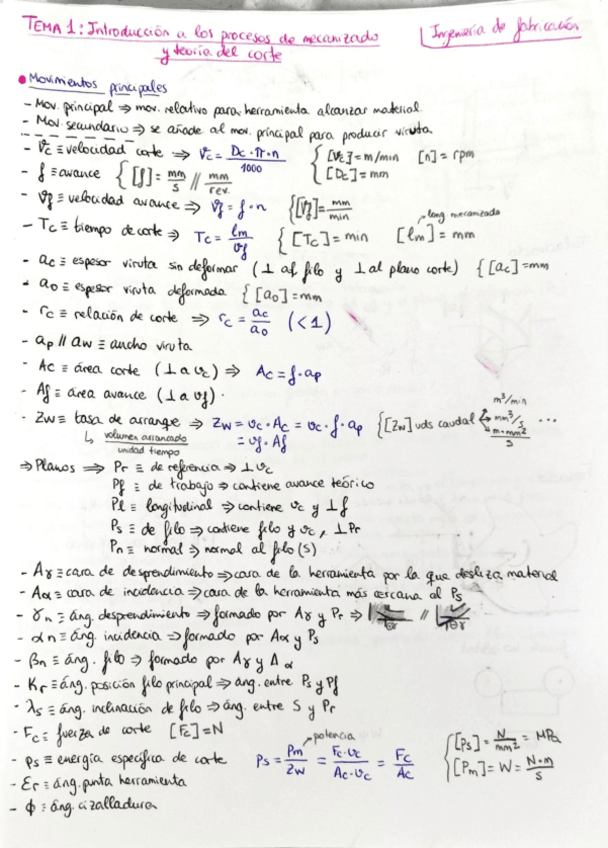 TEMA 1: Introducción a los procesos de mecanizado
y teoría del corte
Ingeniería de fabricación
• Movimientos principales
- Mov. principal ⇒ mov. relativo para herramienta alcanzar material.
- Mov. secundario ⇒ se añade al mov. principal para producir viruta
- Vc ≡ velocidad corte ⇒ Vc = Dc·π·n / 1000 { [Vc] = m/min [n] = rpm
[Dc] = mm
- f ≡ avance { [f] = mm/s // mm/rev.
- Vf ≡ velocidad avance ⇒ Vf = f·n { [Vf] = mm/min
- Tc ≡ tiempo de corte ⇒ Tc = lm/vf { [Tc] = min [lm] = mm → long mecanizada
- ac ≡ espesor viruta sin deformar (⊥ al filo y ⊥ al plano corte) { [ac] = mm
- ao ≡ espesor viruta deformada { [ao] = mm
- rc ≡ relación de corte ⇒ rc = ac/ao (<1)
- ap // aw ≡ ancho viruta
- Ac ≡ área corte (⊥ a vc) ⇒ Ac = f·ap
- Af ≡ área avance (⊥ a vf).
- Zw ≡ tasa de arranque ⇒ Zw = vc·Ac = vc·f·ap { [Zw] uds caudal m³/min mm³/s m·mm²/s ...
↳ volumen arrancado / unidad tiempo = vf·Af
⇒ Planos ⇒ Pr ≡ de referencia ⇒ ⊥ vc
Pf ≡ de trabajo ⇒ contiene avance teórico
Pl ≡ longitudinal ⇒ contiene vc y ⊥ f
Ps ≡ de filo ⇒ contiene filo y vc, ⊥ Pr
Pn ≡ normal ⇒ normal al filo (S)
- Aγ ≡ cara de desprendimiento ⇒ cara de la herramienta por la que desliza material
- Aα ≡ cara de incidencia ⇒ cara de la herramienta más cercana al Ps
- γn ≡ áng. desprendimiento ⇒ formado por Aγ y Pr ⇒ //
- αn ≡ áng. incidencia ⇒ formado por Aα y Ps
- βn ≡ áng. filo ⇒ formado por Aγ y Aα
- Kr ≡ áng. posición filo principal ⇒ ang. entre Ps y Pf
- λs ≡ áng. inclinación de filo ⇒ áng. entre S y Pr
- Fc ≡ fuerza de corte [Fc] = N
- ps ≡ energía específica de corte Ps = Pm/Zw = Fc·vc/Ac·vc = Fc/Ac → potencia { [Ps] = N/mm² = MPa
[Pm] = W = N·m/s
- Er ≡ áng. punta herramienta
- ϕ ≡ áng. cizalladura